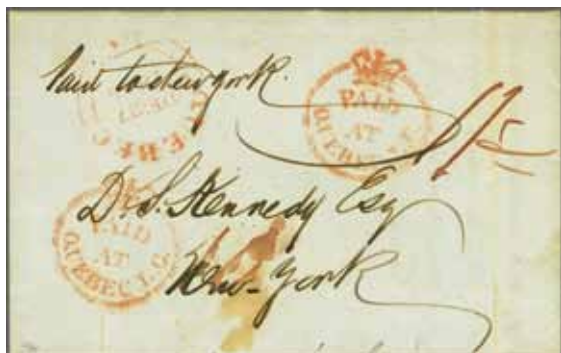 Paid to New York.
QUEBEC
PAID
AT
QUEBEC L.C.
1/5
D. S. Kennedy Esq
PAID
AT
QUEBEC L.C.
New-York